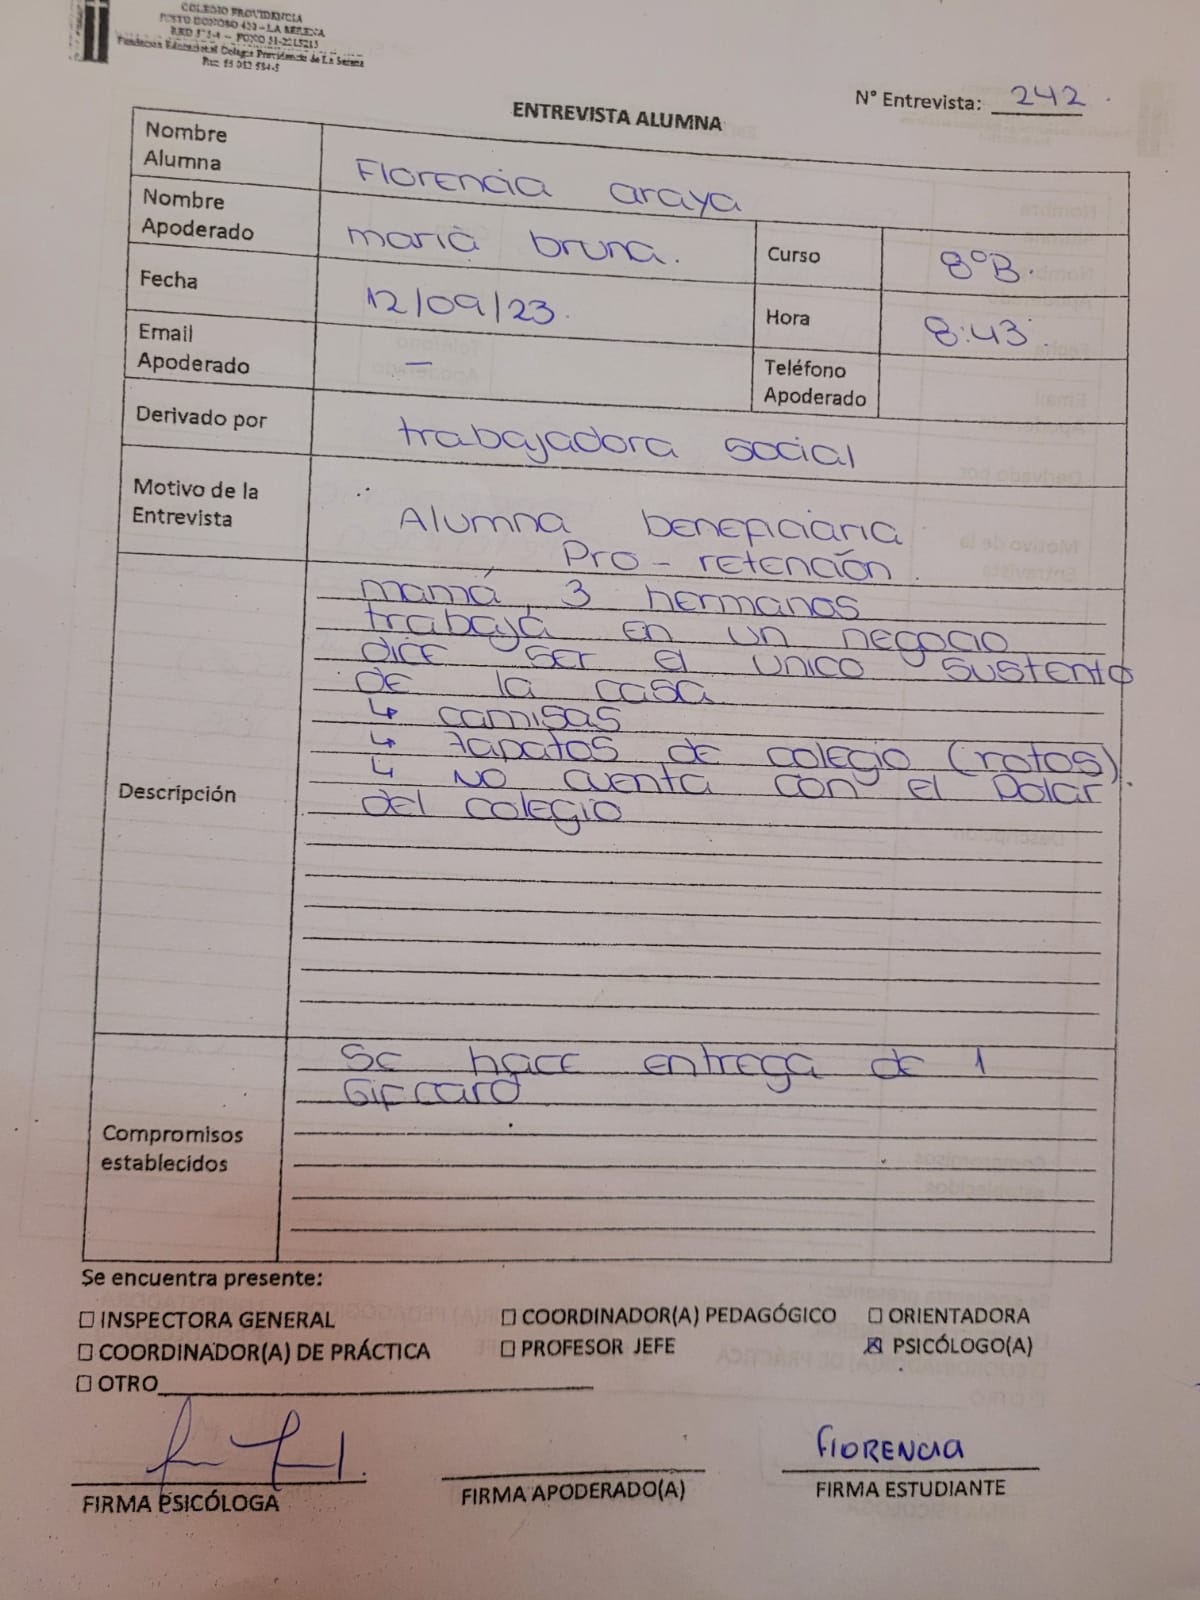 COLEGIO PROVIDENCIA
JUSTO DONOSO 420 - LA SERENA
Fundación Educacional Colegio Providencia de La Serena
N° Entrevista: 242
ENTREVISTA ALUMNA
Nombre Alumna Florencia araya
Nombre Apoderado maria bruna.
Curso 8°B.
Fecha 12/09/23.
Hora 8:43.
Email Apoderado —
Teléfono Apoderado
Derivado por trabajadora social
Motivo de la Entrevista Alumna beneficiaria
Pro-retención.
Descripción
mamá, 3 hermanos
trabaja en un negocio
dice ser el unico sustento
de la casa
↳ camisas
↳ zapatos de colegio (rotos)
↳ No cuenta con el Polar.
del colegio
Compromisos establecidos
Se hace entrega de 1
Gifcard
Se encuentra presente:
☐ INSPECTORA GENERAL ☐ COORDINADOR(A) PEDAGÓGICO ☐ ORIENTADORA
☐ COORDINADOR(A) DE PRÁCTICA ☐ PROFESOR JEFE ☒ PSICÓLOGO(A)
☐ OTRO
FlORENCIA
FIRMA PSICÓLOGA FIRMA APODERADO(A) FIRMA ESTUDIANTE